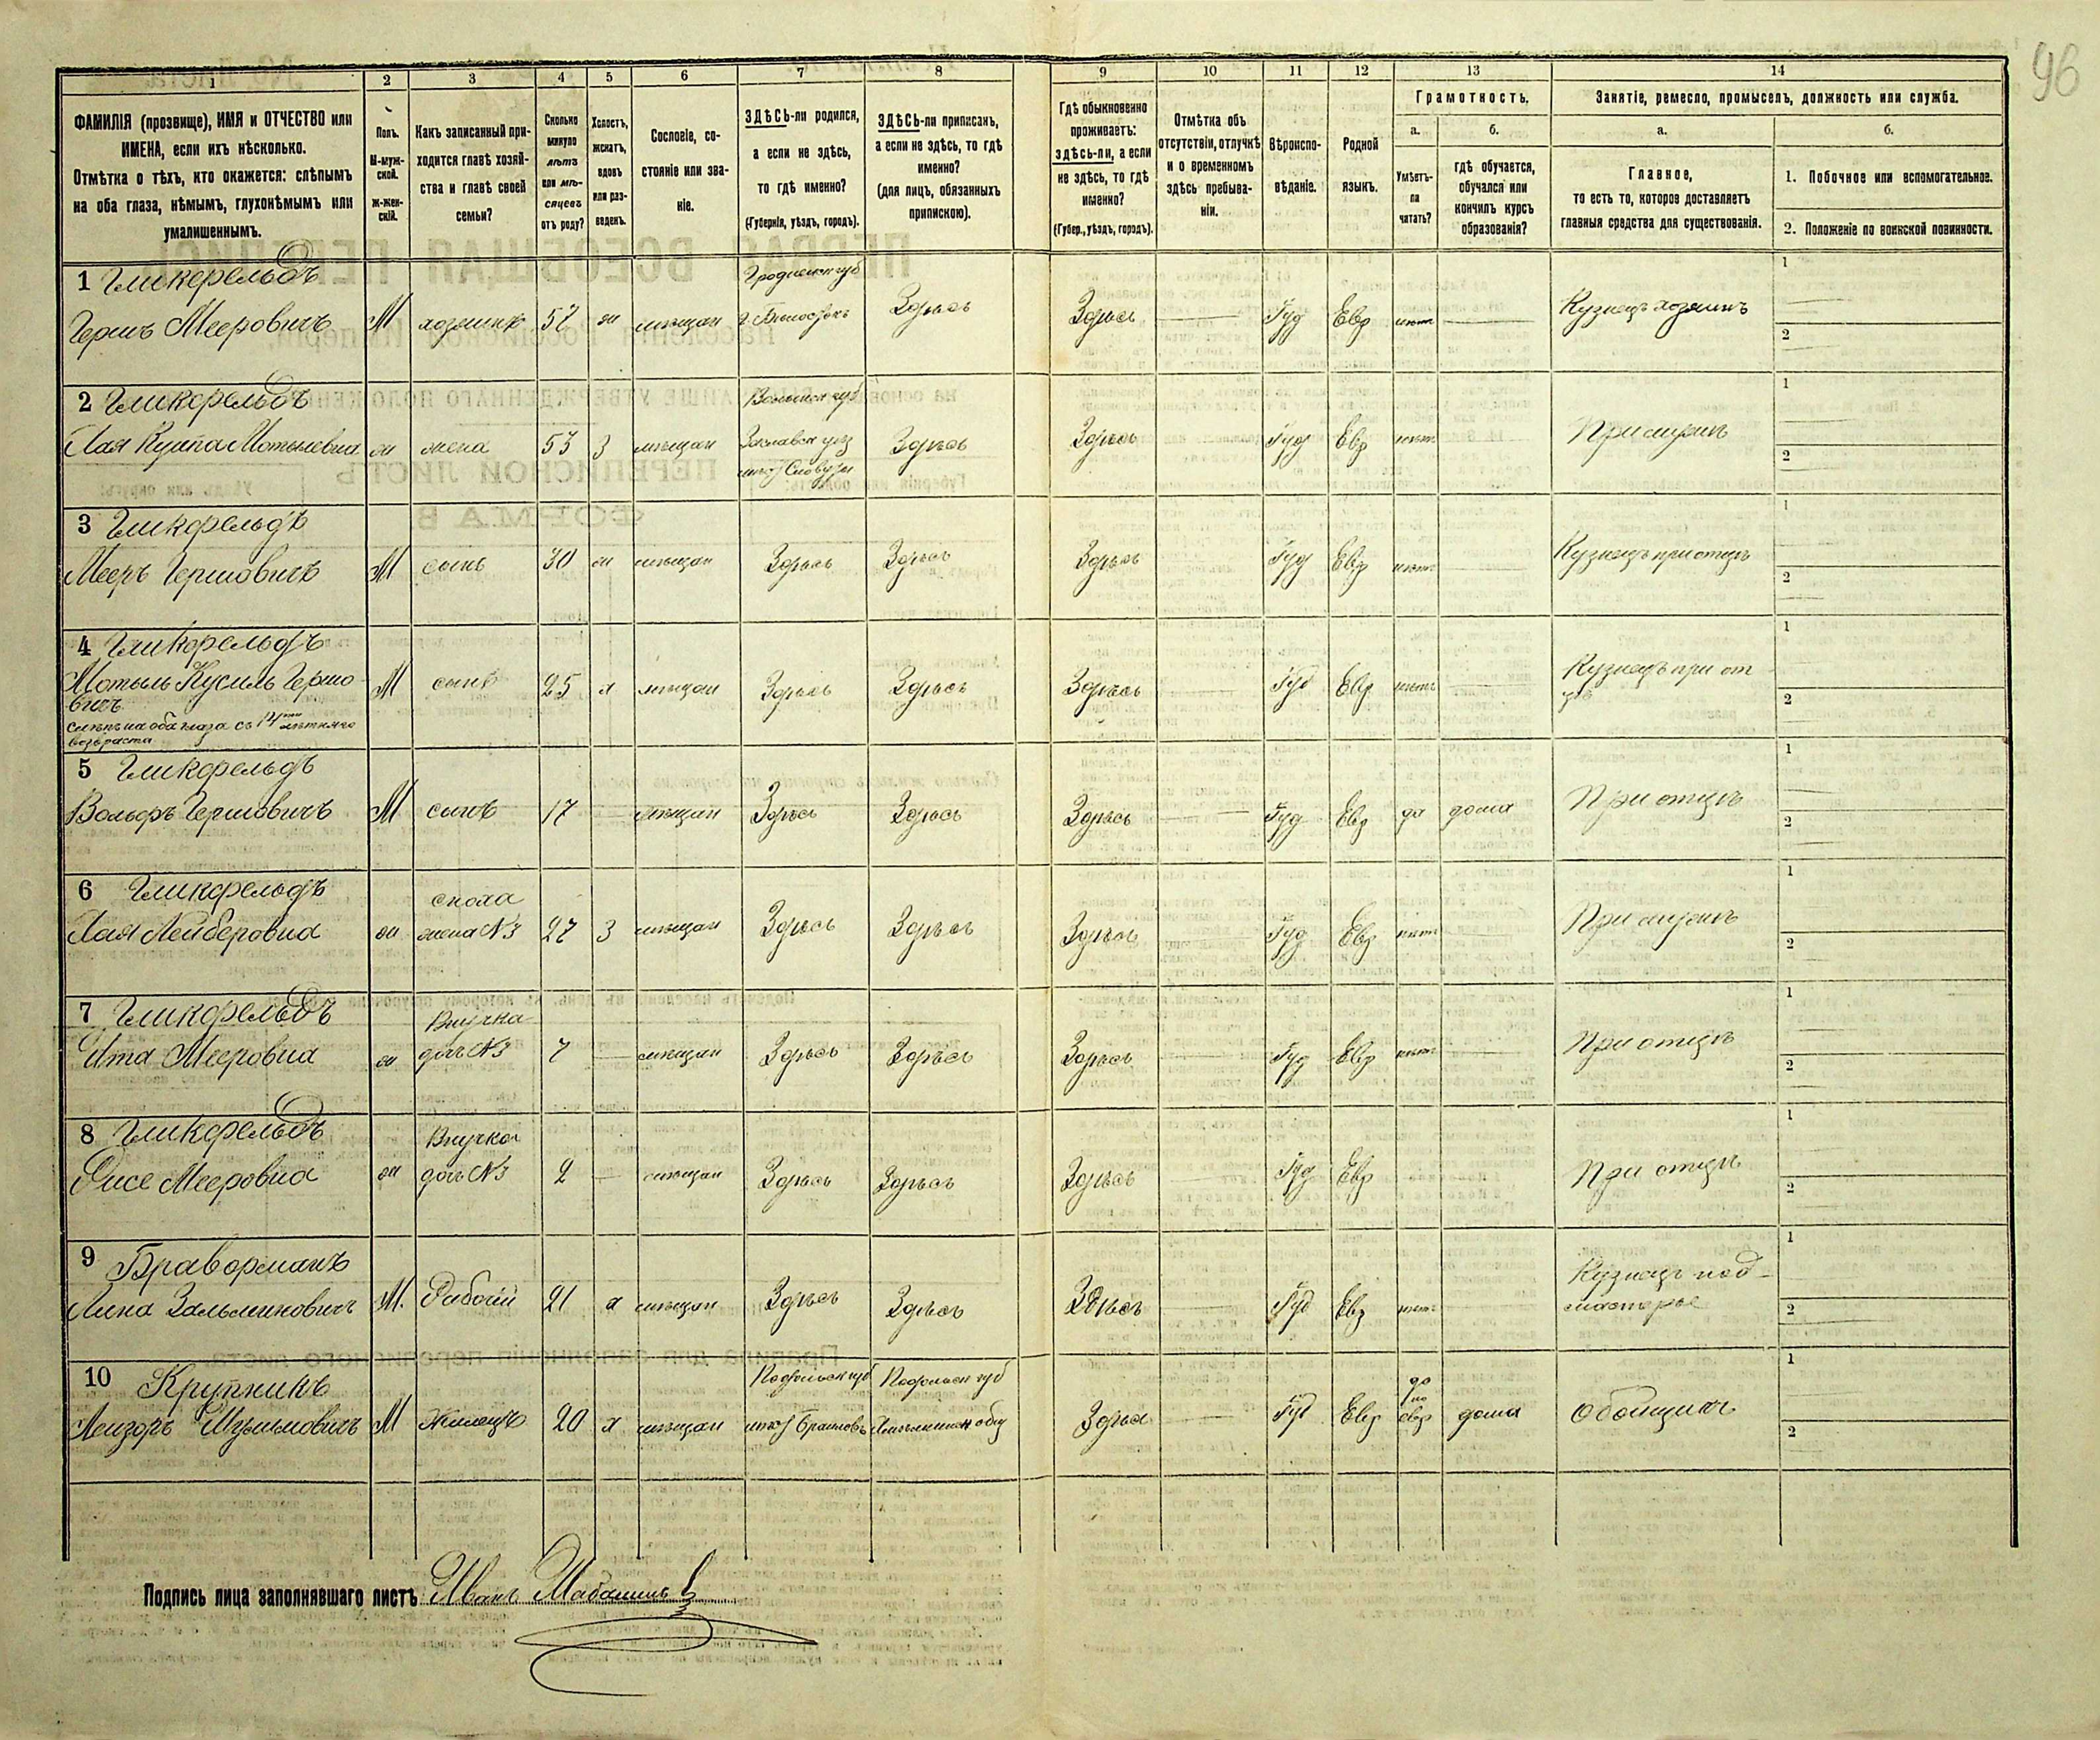 96
1 2 3 4 5 6 7 8 9 10 11 12 13 14
ФАМИЛІЯ (прозвище), ИМЯ и ОТЧЕСТВО или
ИМЕНА, если ихъ нѣсколько.
Отмѣтка о тѣхъ, кто окажется: слѣпымъ
на оба глаза, нѣмымъ, глухонѣмымъ или
умалишеннымъ.
Полъ.
М-муж-
ской.
Ж-жен-
скій.
Какъ записанный при-
ходится главѣ хозяй-
ства и главѣ своей
семьи?
Сколько
минуло
лѣтъ
или мѣ-
сяцевъ
отъ роду?
Холостъ,
женатъ,
вдовъ
или раз-
веденъ.
Сословіе, со-
стояніе или зва-
ніе.
ЗДѢСЬ-ли родился,
а если не здѣсь,
то гдѣ именно?
(Губернія, уѣздъ, городъ).
ЗДѢСЬ-ли приписанъ,
а если не здѣсь, то гдѣ
именно?
(для лицъ, обязанныхъ
припискою).
Гдѣ обыкновенно
проживаетъ:
здѣсь-ли, а если
не здѣсь, то гдѣ
именно?
(Губер., уѣздъ, городъ).
Отмѣтка объ
отсутствіи, отлучкѣ
и о временномъ
здѣсь пребыва-
ніи.
Вѣроиспо-
вѣданіе.
Родной
языкъ.
Грамотность.
а.
Умѣетъ-
ли
читать?
б.
гдѣ обучается,
обучался или
кончилъ курсъ
образованія?
Занятіе, ремесло, промыселъ, должность или служба.
а.
Главное,
то есть то, которое доставляетъ
главныя средства для существованія.
б.
1. Побочное или вспомогательное.
2. Положеніе по воинской повинности.
1 Гликфельдъ
Гершъ Мееровичъ М хозяинъ 57 ж мѣщан
Гродненск губ
г Бѣлостокъ
Здѣсь Здѣсь Іуд Евр нѣтъ Кузнецъ хозяинъ
1
2
2 Гликфельдъ
Хая Мотьлевна ж жена 53 З мѣщан
Волынск губ
Заславск уѣз
Здѣсь Здѣсь Іуд Евр нѣтъ При мужѣ
1
2
3 Гликфельдъ
Мееръ Гершовичъ М сынъ 30 ж мѣщан Здѣсь Здѣсь Здѣсь Іуд Евр нѣтъ Кузнецъ при отцѣ
1
2
4 Гликфельдъ
Мотыль Кусиль Гершо
вичъ
слѣпъ на оба глаза съ 14ти лѣтняго
возраста
М сынъ 25 х мѣщан Здѣсь Здѣсь Здѣсь Іуд Евр нѣтъ Кузнецъ при от
цѣ
1
2
5 Гликфельдъ
Вольфъ Гершовичъ М сынъ 17 мѣщан Здѣсь Здѣсь Здѣсь Іуд Евр да дома При отцѣ
1
2
6 Гликфельдъ
Хая Лейберовна ж
сноха
жена №3
27 З мѣщан Здѣсь Здѣсь Здѣсь Іуд Евр нѣтъ При мужѣ
1
2
7 Гликфельдъ
Ита Мееровна ж
Внучка
дочь №3
7 мѣщан Здѣсь Здѣсь Здѣсь Іуд Евр нѣтъ При отцѣ
1
2
8 Гликфельдъ
Мееровна ж
Внучка
дочь №3
2 мѣщан Здѣсь Здѣсь Здѣсь Іуд Евр При отцѣ
1
2
9 Браверманъ
Зальмановичъ М. Рабочій 21 х мѣщан Здѣсь Здѣсь Здѣсь Іуд Евр нѣтъ
Кузнецъ под-
мастерье
1
2
10 Крупникъ
Лейзоръ М Жилецъ 20 х мѣщан
Подольск губ
мѣст Браиловъ
Подольск губ
общ
Здѣсь Іуд Евр
да
по
евр
дома Обойщикъ
1
2
Подпись лица заполнявшаго листъ Иванъ